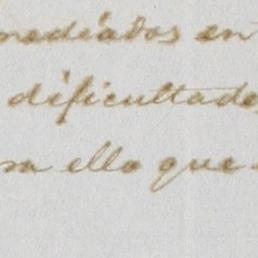 mediados en
dificultade
ra ello que